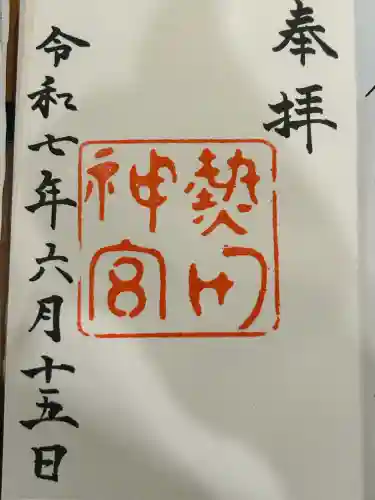 奉拝
熱田
神宮
令和七年六月十五日